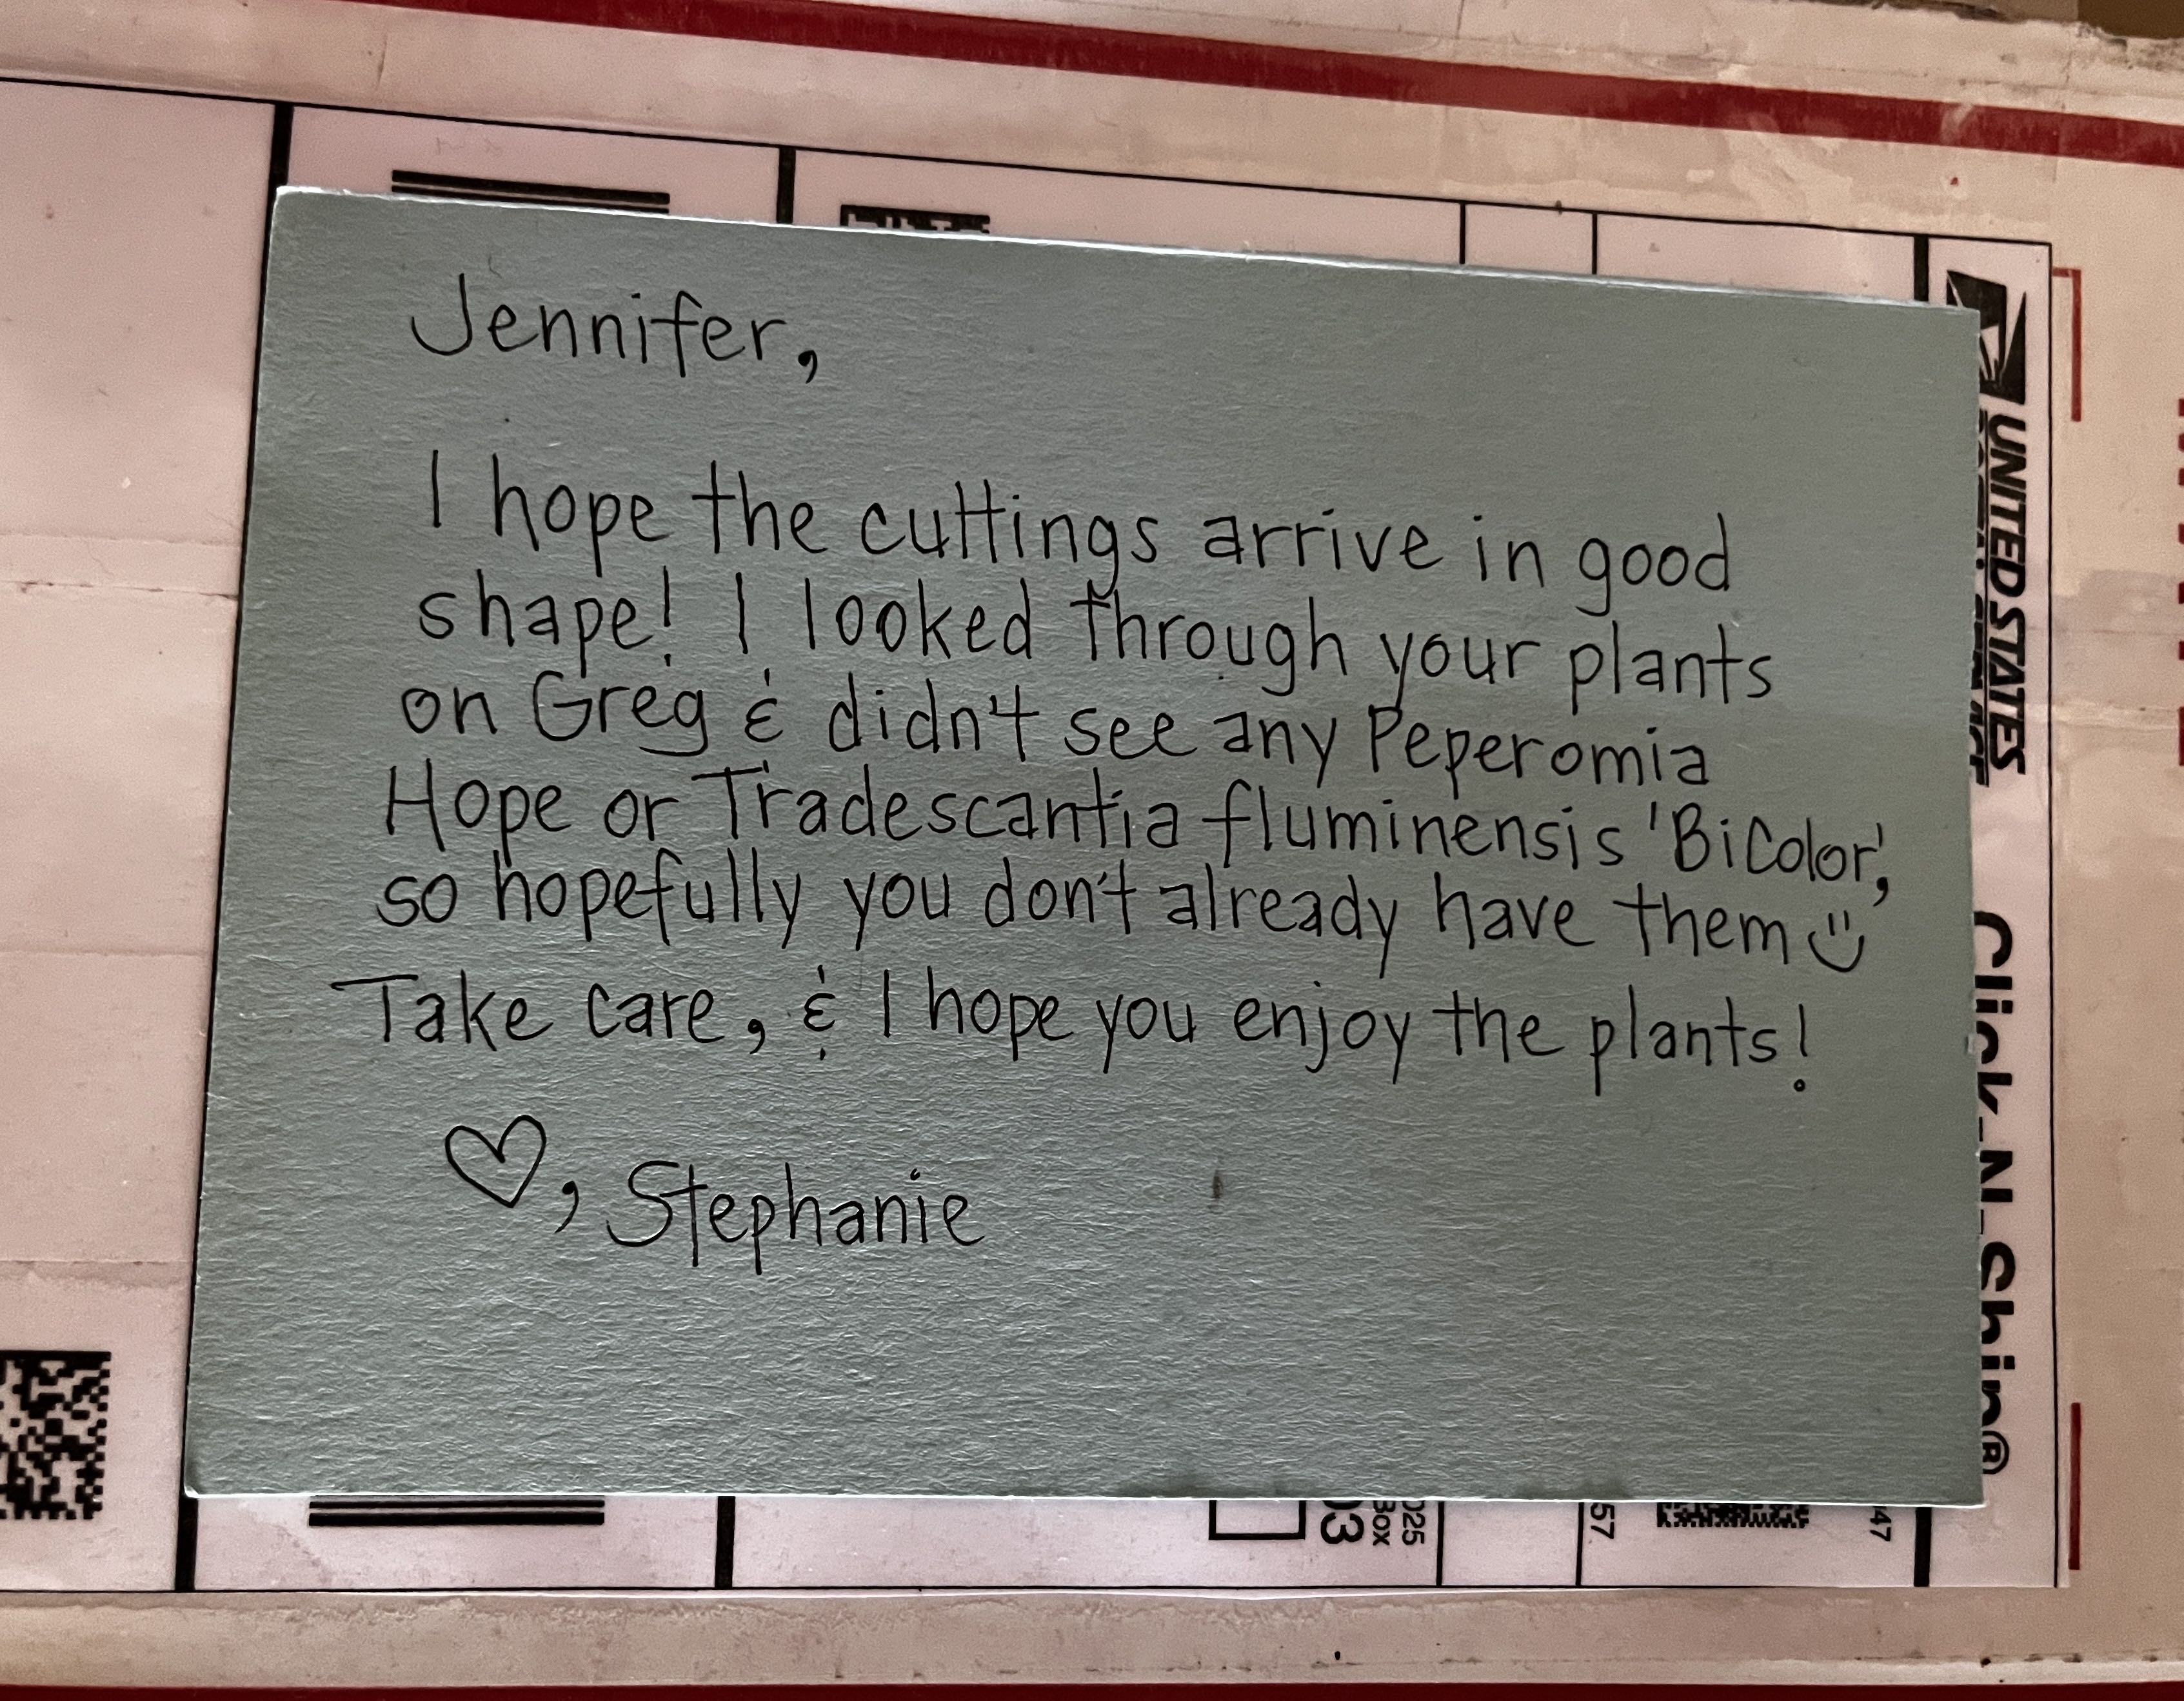 Jennifer,
I hope the cuttings arrive in good
shape! I looked through your plants
on Greg & didn't see any Peperomia
Hope or Tradescantia fluminensis 'BiColor',
so hopefully you don't already have them
Take care, & I hope you enjoy the plants!
♡, Stephanie
UNITED STATES
Click-N-Ship®
03
BOX
025
57
47